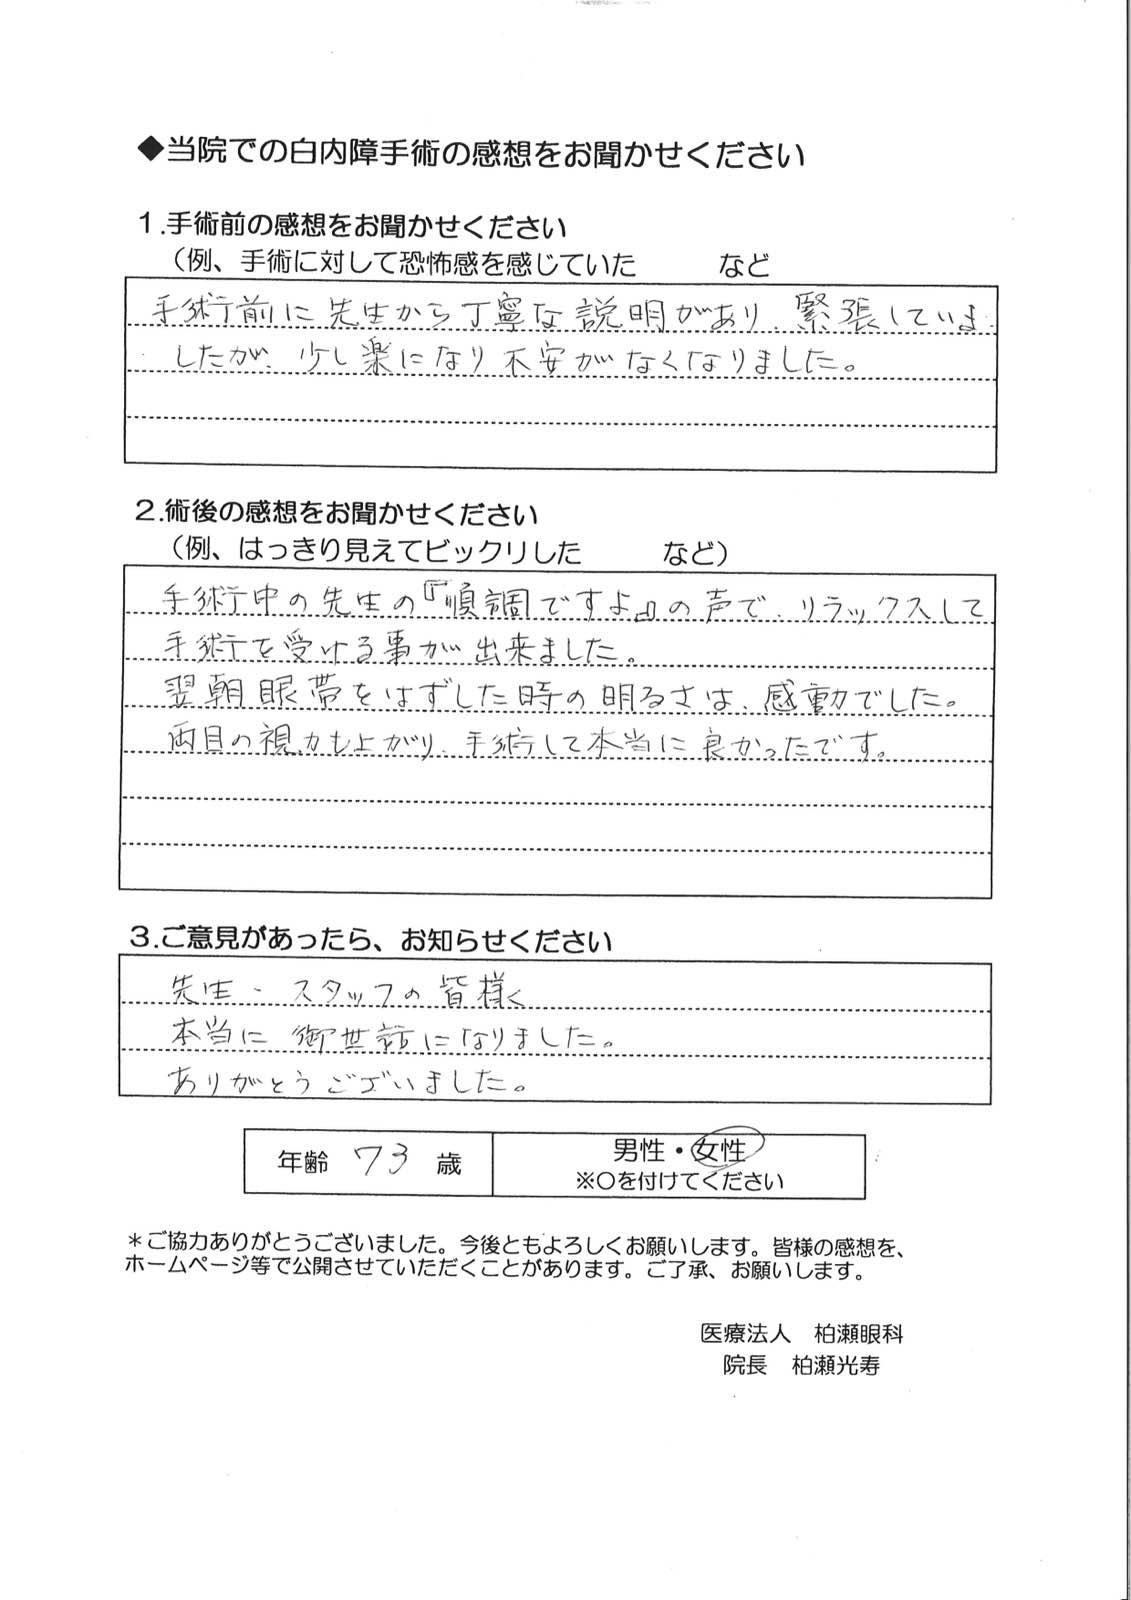 ◆当院での白内障手術の感想をお聞かせください
1.手術前の感想をお聞かせください
（例、手術に対して恐怖感を感じていた　　　など
手術前に先生から丁寧な説明があり、緊張していま
したが、少し楽になり不安がなくなりました。
2.術後の感想をお聞かせください
（例、はっきり見えてビックリした　　　など）
手術中の先生の『順調ですよ』の声で、リラックスして
手術を受ける事が出来ました。
翌朝眼帯をはずした時の明るさは、感動でした。
両目の視力も上がり、手術して本当に良かったです。
3.ご意見があったら、お知らせください
先生・スタッフの皆様へ
本当に御世話になりました。
ありがとうございました。
年齢 73 歳
男性・女性
※〇を付けてください
＊ご協力ありがとうございました。今後ともよろしくお願いします。皆様の感想を、
ホームページ等で公開させていただくことがあります。ご了承、お願いします。
医療法人　柏瀬眼科
院長　柏瀬光寿